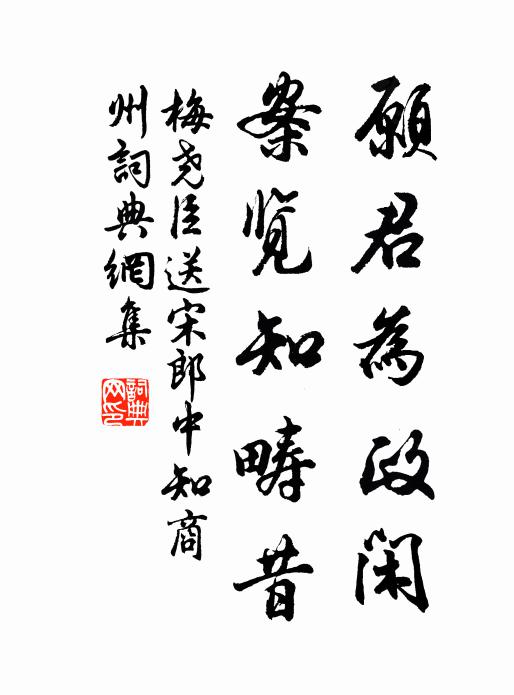 願君為政閑
案览知疇昔
梅尭臣送宋郎中知商
州詞典網集
詞典
网印